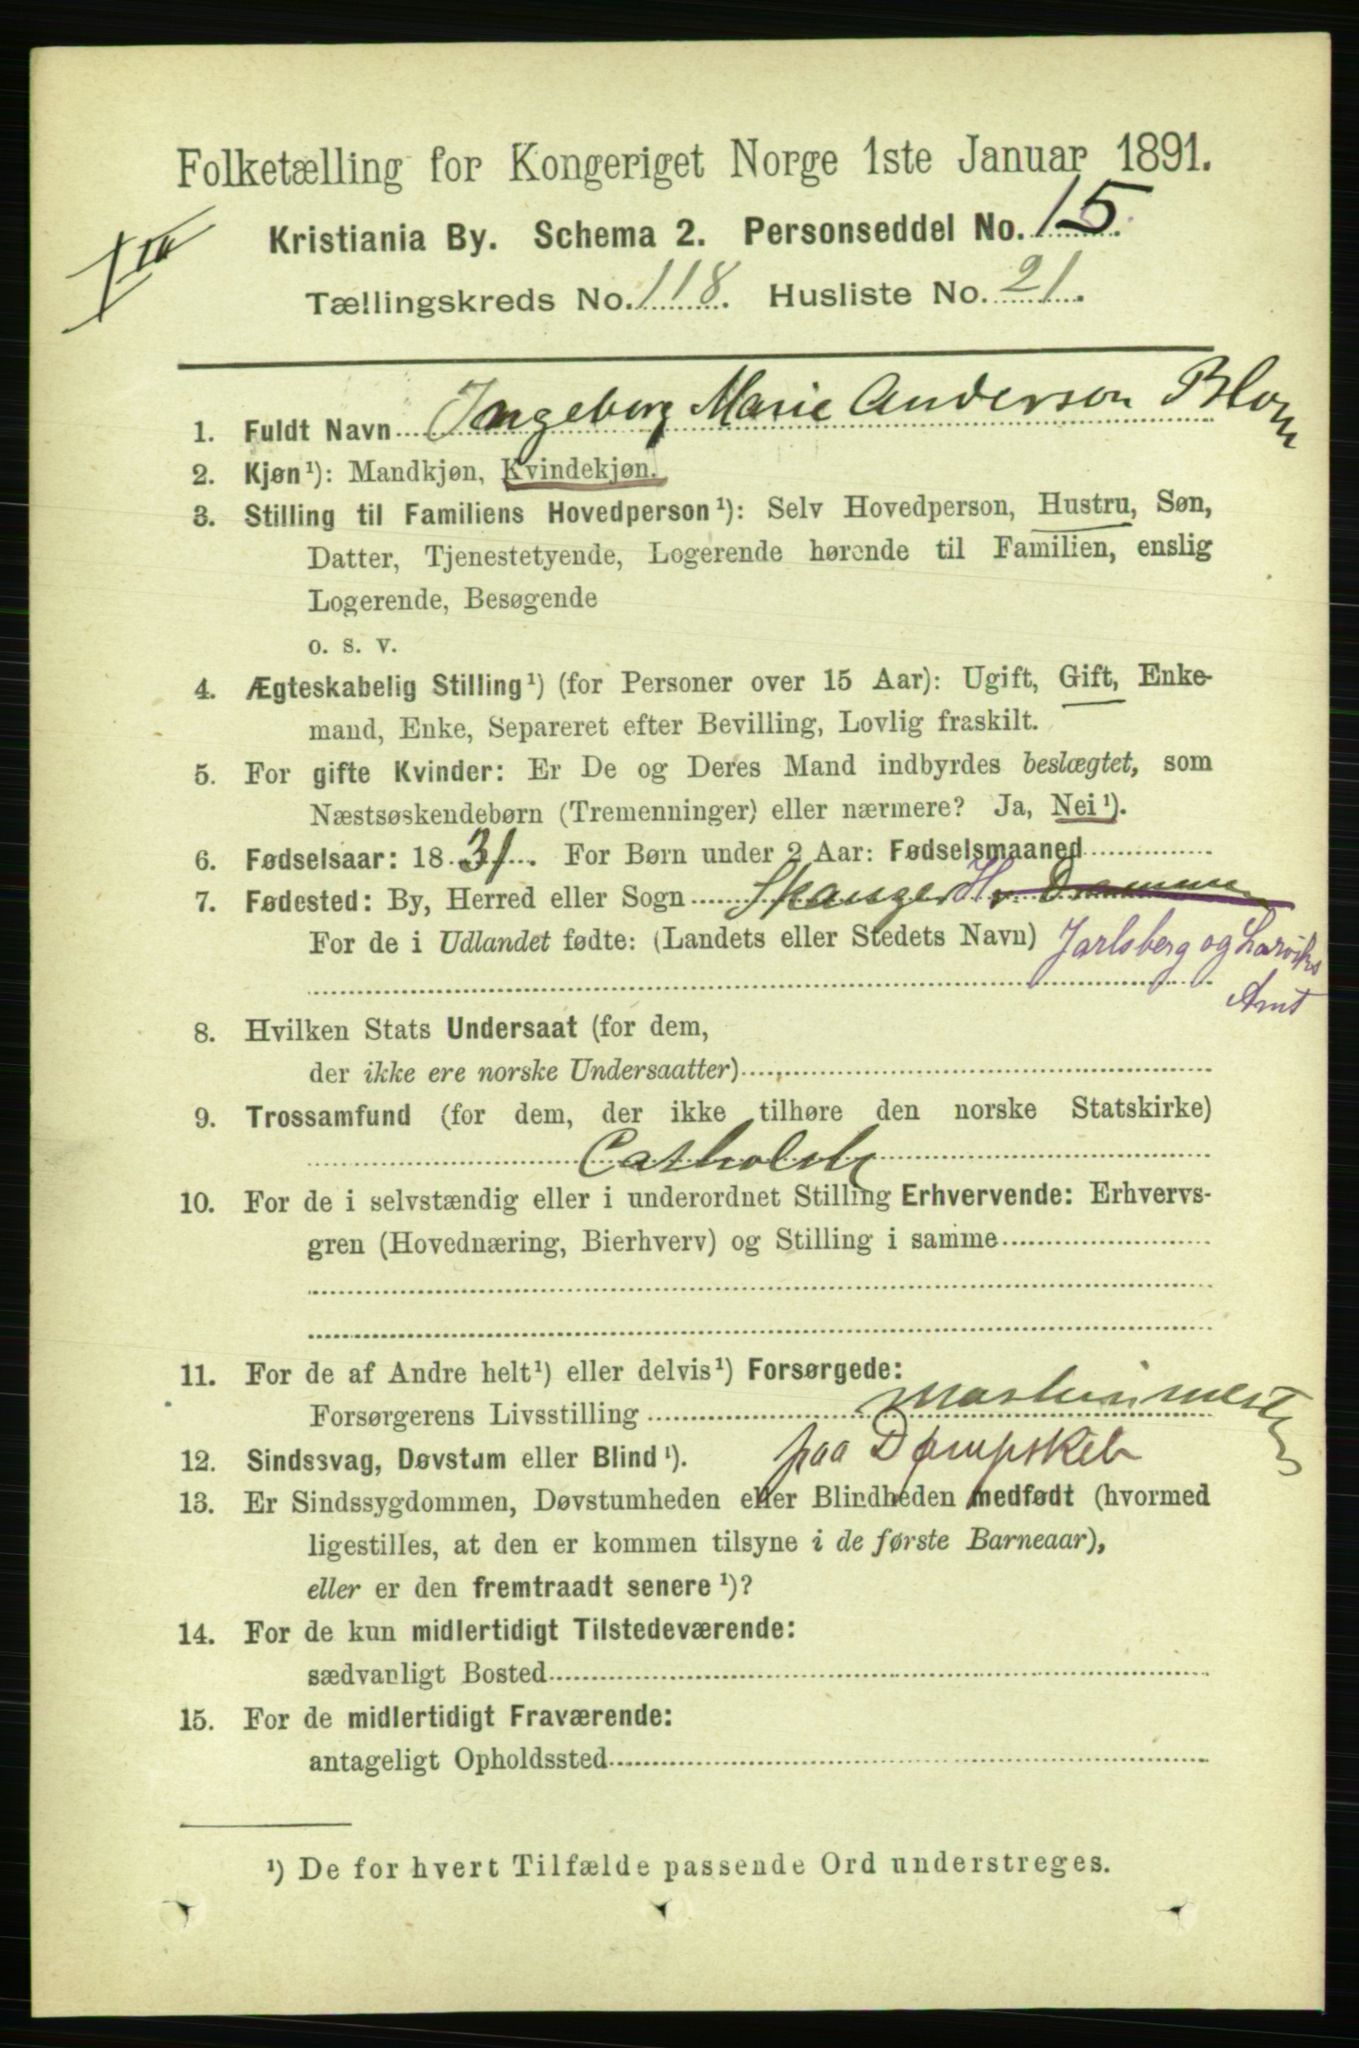 Folketælling for Kongeriget Norge 1ste Januar 1891.
Kristiania By. Schema 2. Personseddel No. 15.
Tællingskreds No. 118. Husliste No. 21.
1. Fuldt Navn Ingeborg Marie Anderson Blom
2. Kjøn¹): Mandkjøn, Kvindekjøn.
3. Stilling til Familiens Hovedperson¹): Selv Hovedperson, Hustru, Søn,
Datter, Tjenestetyende, Logerende hørende til Familien, enslig
Logerende, Besøgende
o. s. v.
4. Ægteskabelig Stilling¹) (for Personer over 15 Aar): Ugift, Gift, Enke-
mand, Enke, Separeret efter Bevilling, Lovlig fraskilt.
5. For gifte Kvinder: Er De og Deres Mand indbyrdes beslægtet, som
Næstsøskendebørn (Tremenninger) eller nærmere? Ja, Nei¹).
6. Fødselsaar: 1831. For Børn under 2 Aar: Fødselsmaaned
7. Fødested: By, Herred eller Sogn Skanger H. v Drammen
For de i Udlandet fødte: (Landets eller Stedets Navn) Jarlsberg og Larviks
Amt
8. Hvilken Stats Undersaat (for dem,
der ikke ere norske Undersaatter)
9. Trossamfund (for dem, der ikke tilhøre den norske Statskirke)
Catholsk
10. For de i selvstændig eller i underordnet Stilling Erhvervende: Erhvervs-
gren (Hovednæring, Bierhverv) og Stilling i samme
11. For de af Andre helt¹) eller delvis¹) Forsørgede:
Forsørgerens Livsstilling Maskinmester
12. Sindssvag, Døvstum eller Blind¹). paa Dampskib
13. Er Sindssygdommen, Døvstumheden eller Blindheden medfødt (hvormed
ligestilles, at den er kommen tilsyne i de første Barneaar),
eller er den fremtraadt senere¹)?
14. For de kun midlertidigt Tilstedeværende:
sædvanligt Bosted
15. For de midlertidigt Fraværende:
antageligt Opholdssted
¹) De for hvert Tilfælde passende Ord understreges.